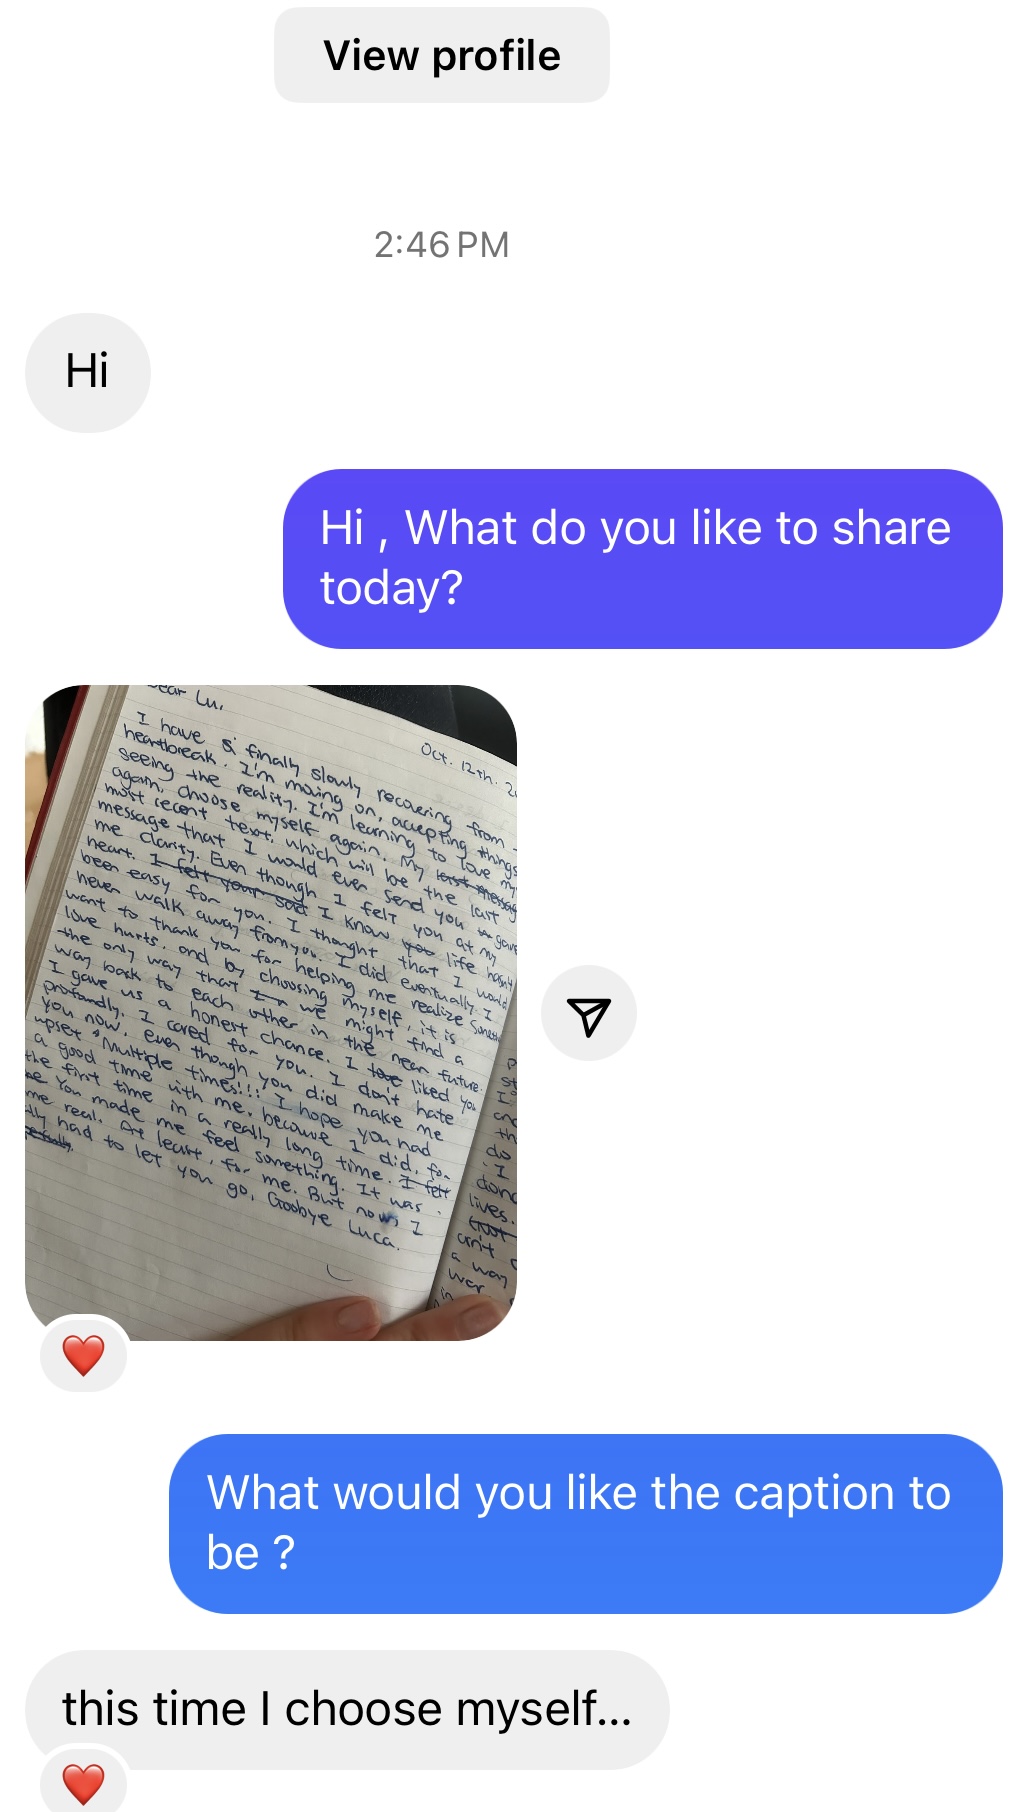 View profile
2:46 PM
Hi
Hi , What do you like to share
today?
Dear Lu,
Oct. 12th.
I have finally slowly recovering from
heartbreak. I'm moving on, accepting things
seeing the reality. I'm learning to love my
again, choose myself again. My last message
most recent text, which will be the last
message that I would ever send you gave
me clarity. Even though I felt you at my
heart. I felt your sad I know you life hasn't
been easy for you. I thought that I would
never walk away from you. I did eventually. I
want to thank you for helping me realize
love hurts. and by choosing myself, it is
the only way that we might find a
way back to each other in the near future.
I gave us a honest chance. I love liked you
profandly. I cared for you. I don't hate
you now, even though you did make me
upset "Multiple times!!! I hope you had
a good time with me, because I did, for
the first time in a really long time. I felt
You made me feel something. It was
me real. At least, for me. But now I
had to let you go. Goobye Luca.
What would you like the caption to
be ?
this time I choose myself...